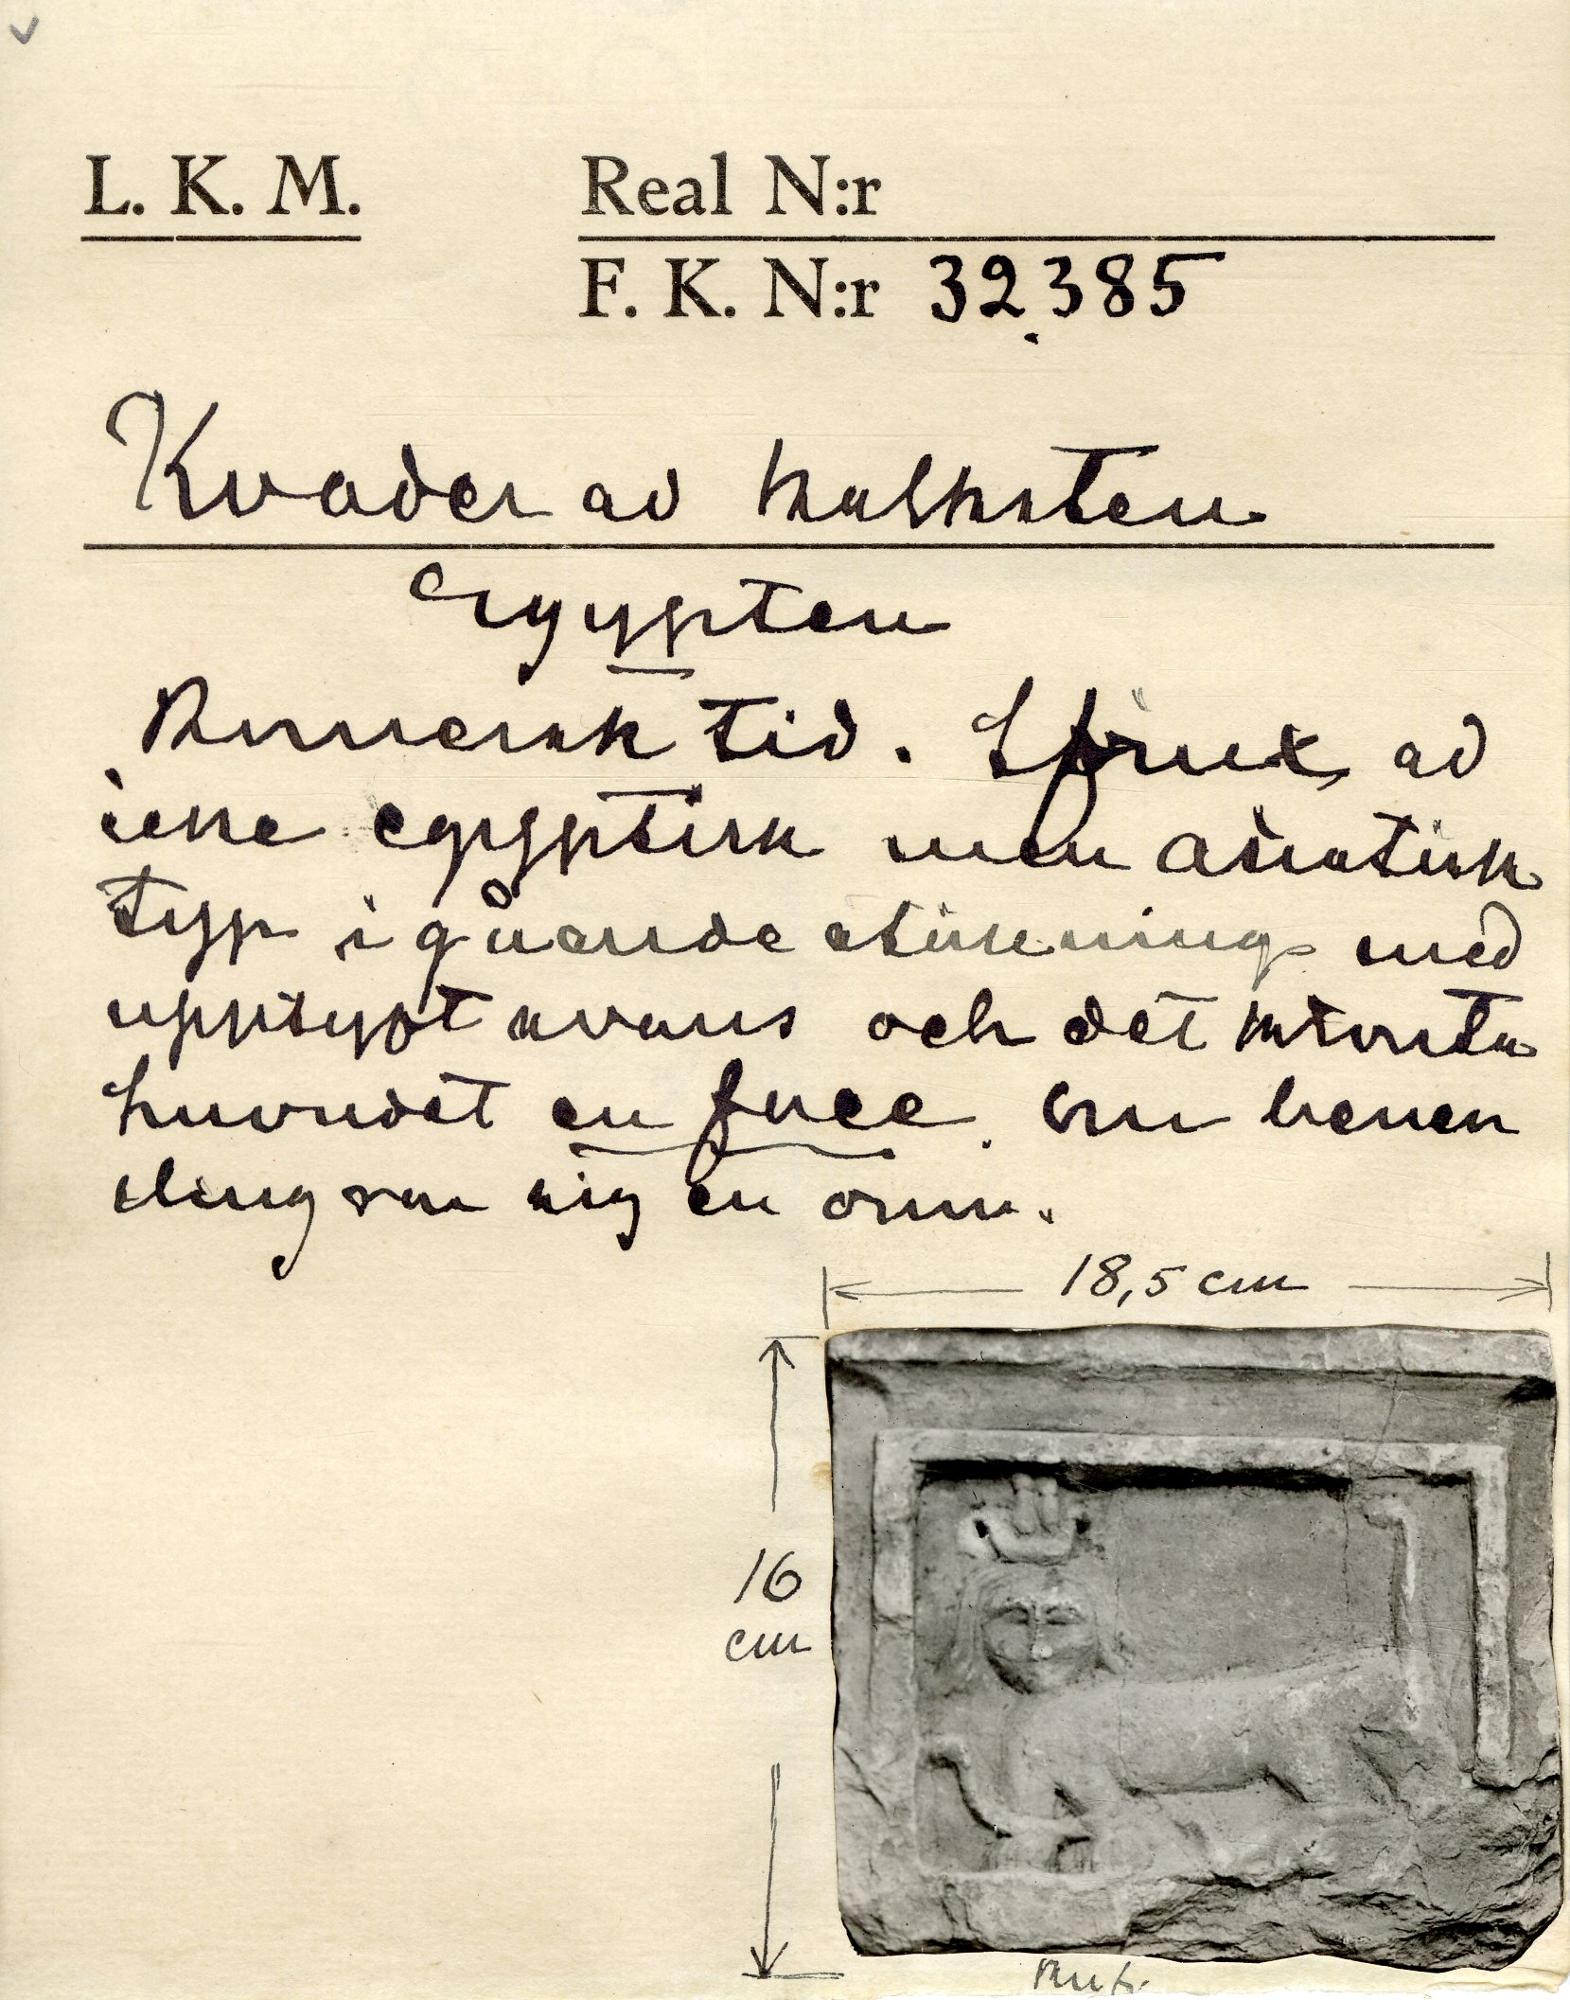 L. K. M.
Real N:r
F. K. N:r 32.385
Kvader av kalksten
Egypten
Romersk tid. Sfinx av
icke egyptisk men asiatisk
typ i gående ställning med
upplyft svans och det stora
huvudet en face. Om benen
slingrar sig en orm.
18,5 cm
16
cm